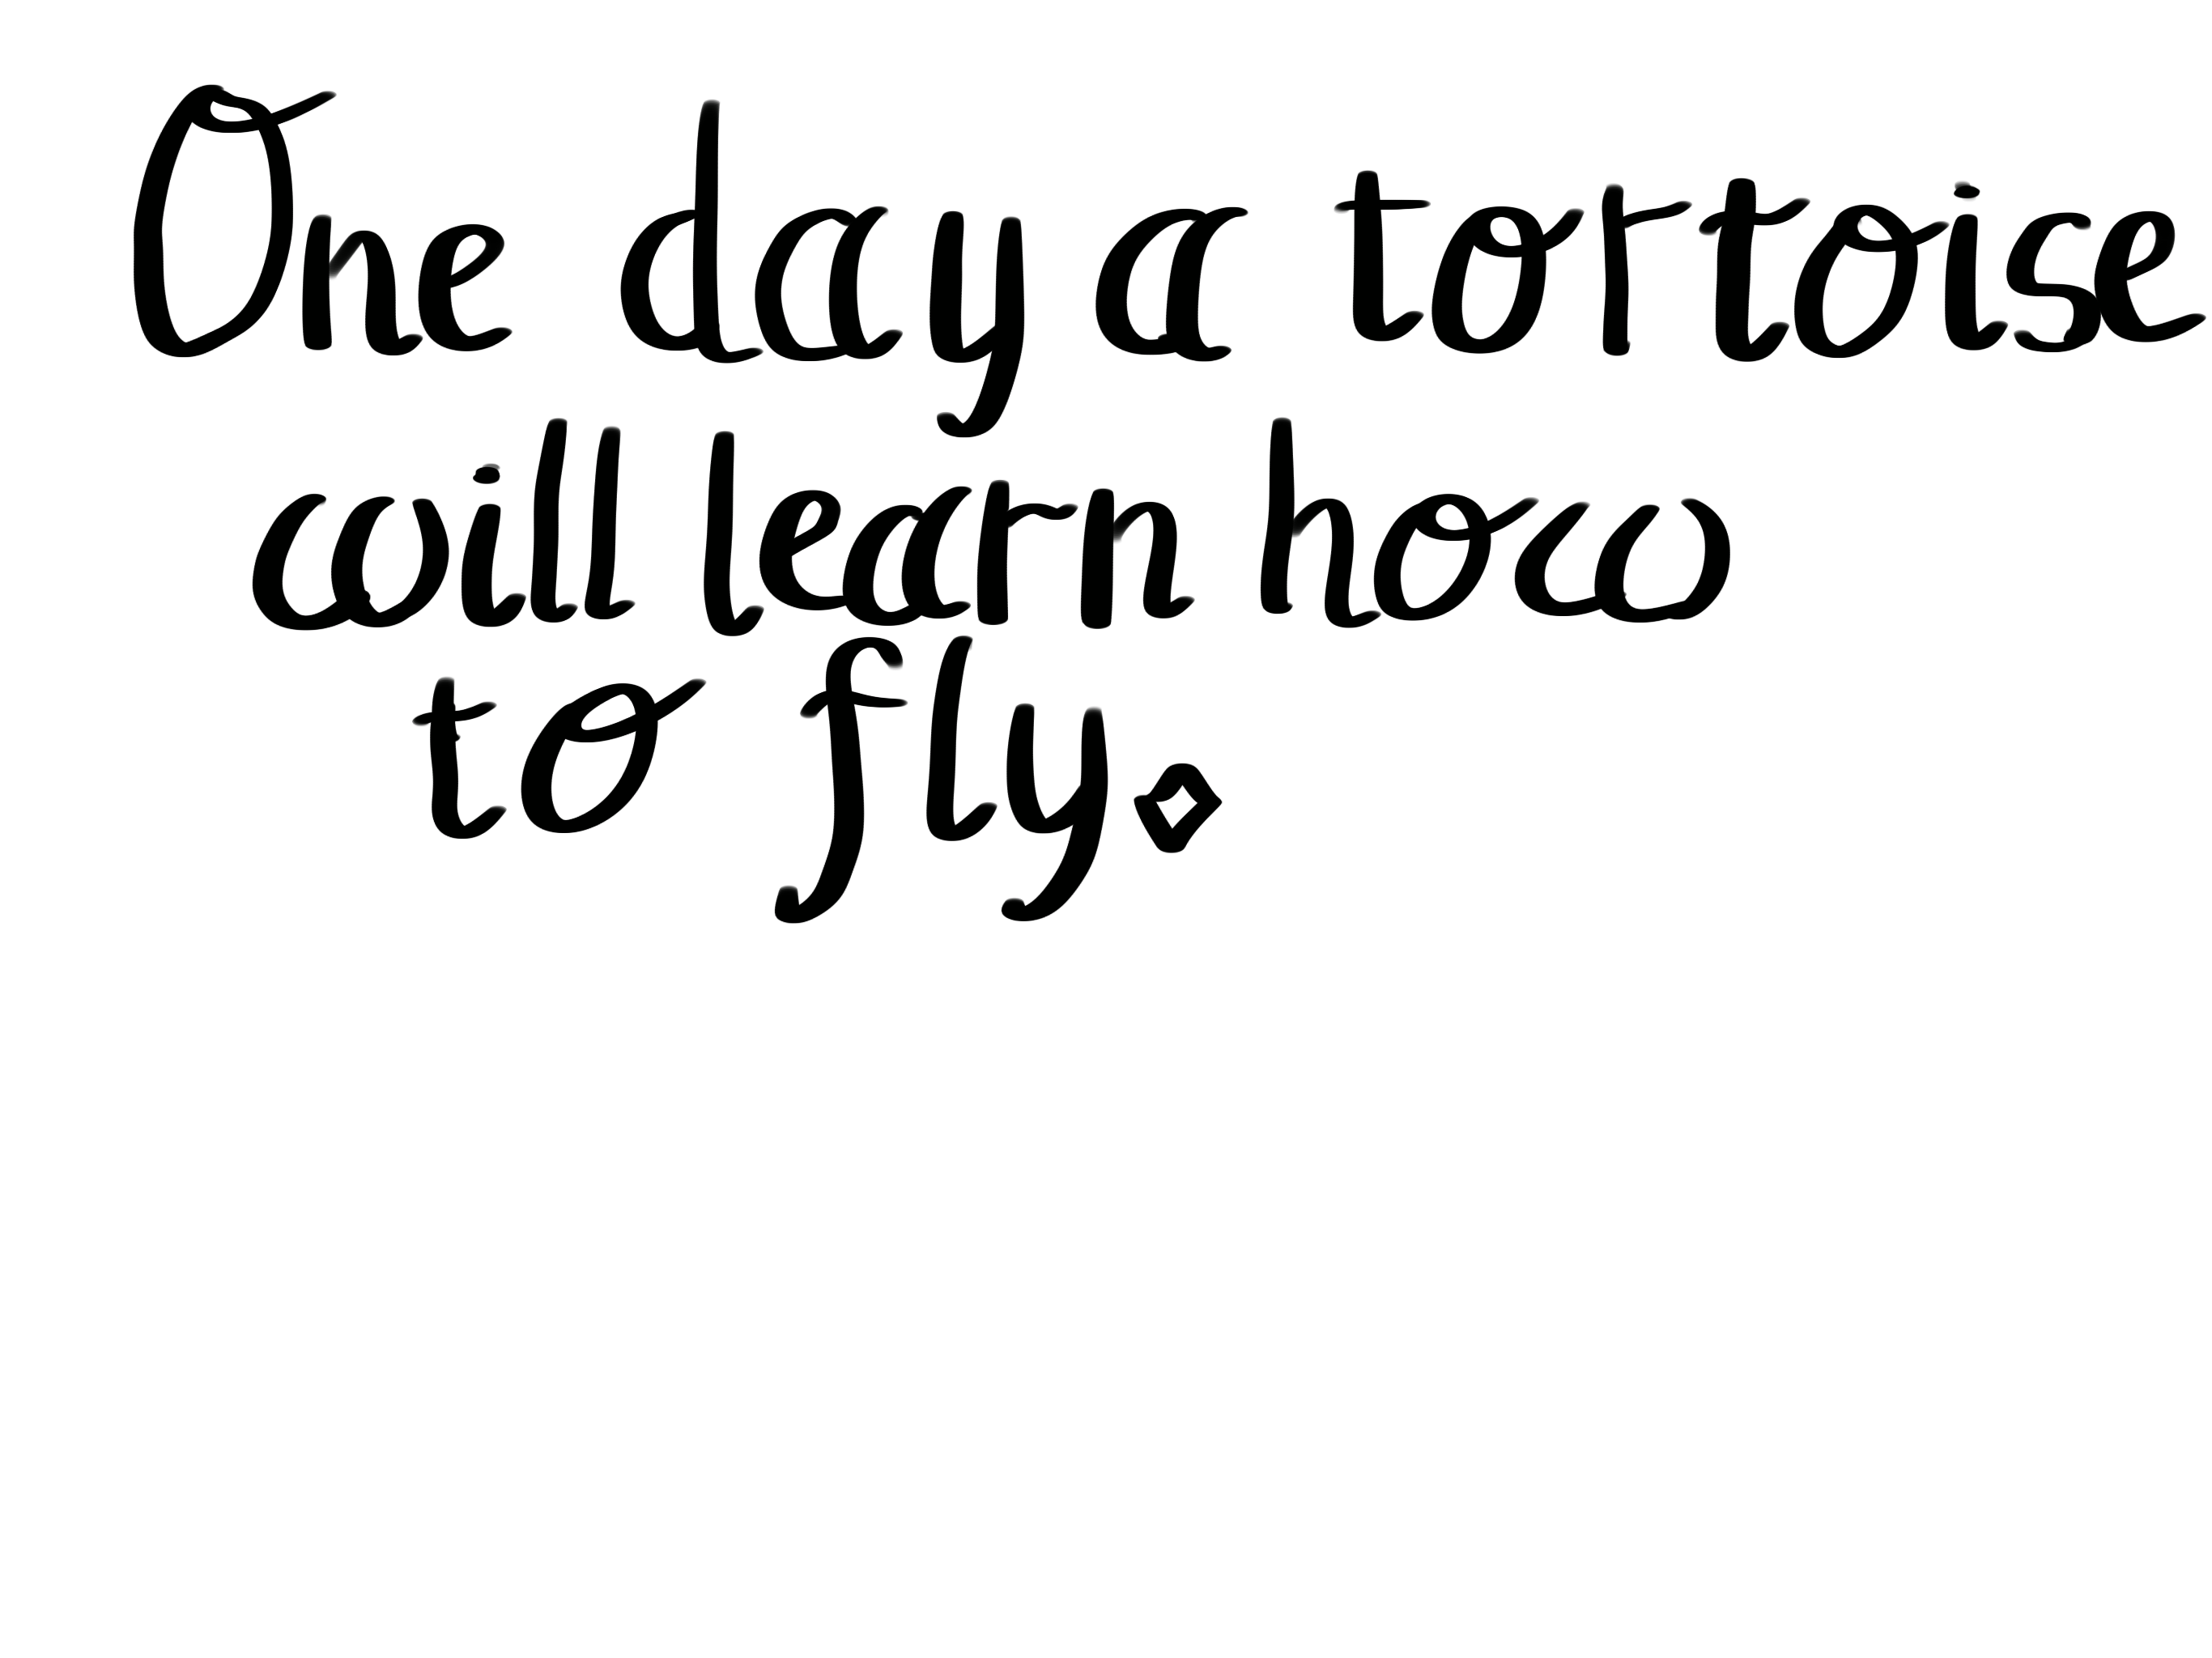 One day a tortoise
will learn how
to fly.